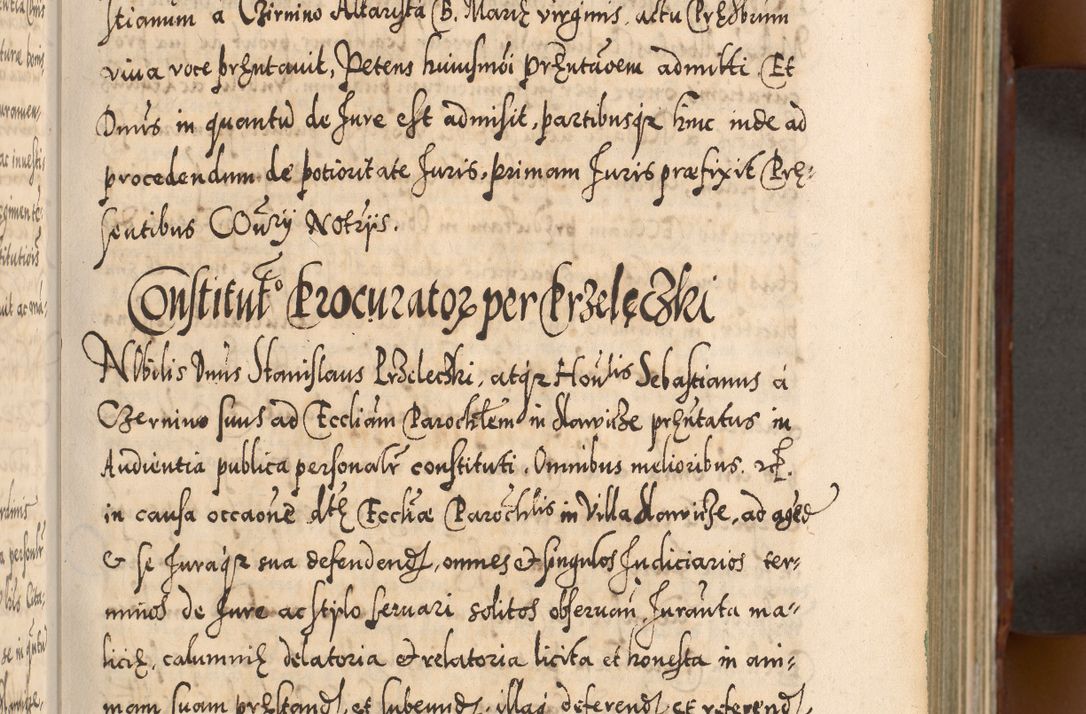 stianum a Czirnino Altarista B. Marię virginis, actu Pręsbrum
viva voce pręntavit, Petens huiusmõi pręntãoem admitti. Et
Dnũs in quantũ de Jure est admisit, partibusqȝ hinc inde ad
procedendum de potioritate Juris, primam Juris præfixit Prę-
sentibus COũrij Notrijs.
Constitutº Procurator per Przelęczki
Nobilis Dnũs Stanislaus Przeleczki, atqȝ Honlis Sebastianus à
Czernino suus ad Eccliãm Parochlem in Slawicze pręntatus in
Audientia publica personalr constituti. Omnibus melioribus. etc.
in causa occaone dtę Eccliæ Parochlis in Villa Slawicze, ad agẽd
& se Juraqȝ sua defendend, omnes et singulos Judiciarios ter-
minos de Jure ac stylo servari solitos observan, Juranta ma-
licię, calumnię delatoria et relatoria licita et honesta in ani-
mam suam pręstand, et subeund, illaq deferend, et referend,